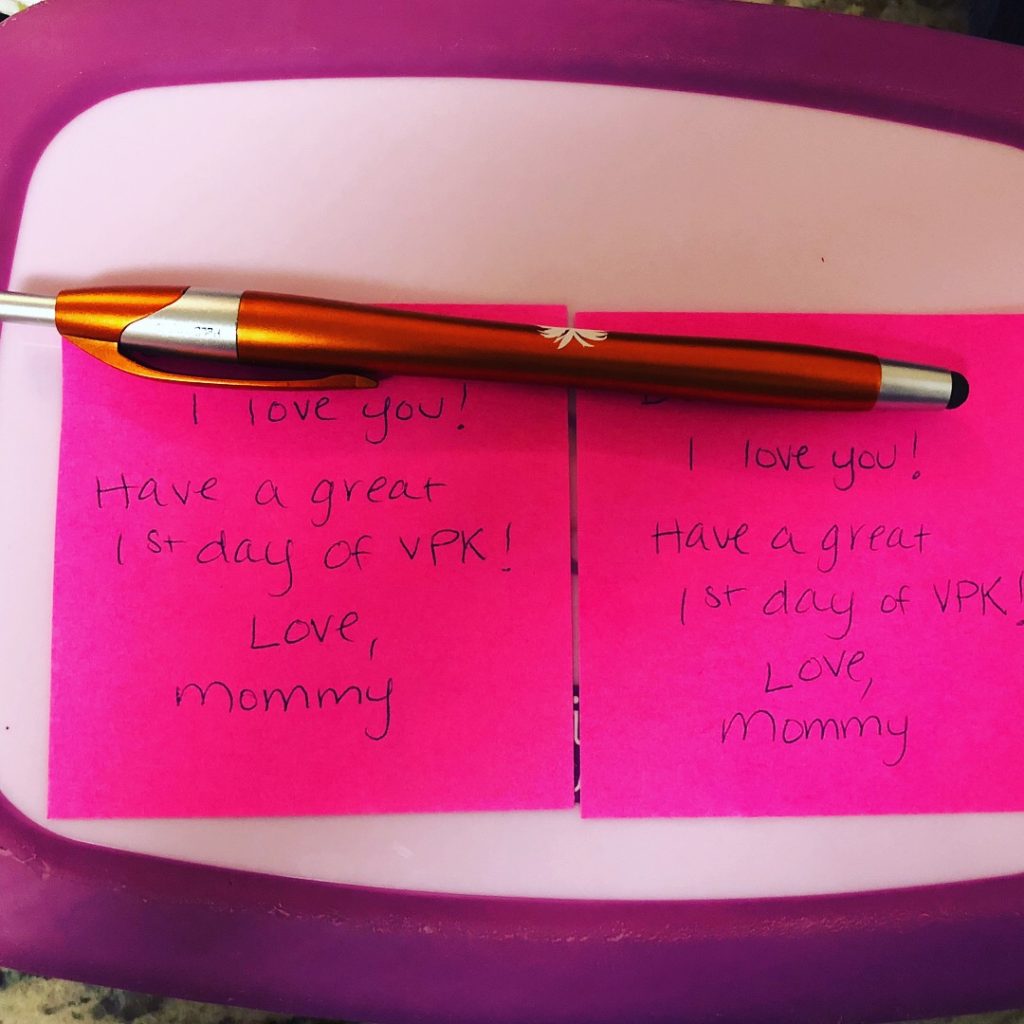 I love you!
Have a great
1st day of VPK!
Love,
Mommy
I love you!
Have a great
1st day of VPK!
Love,
Mommy